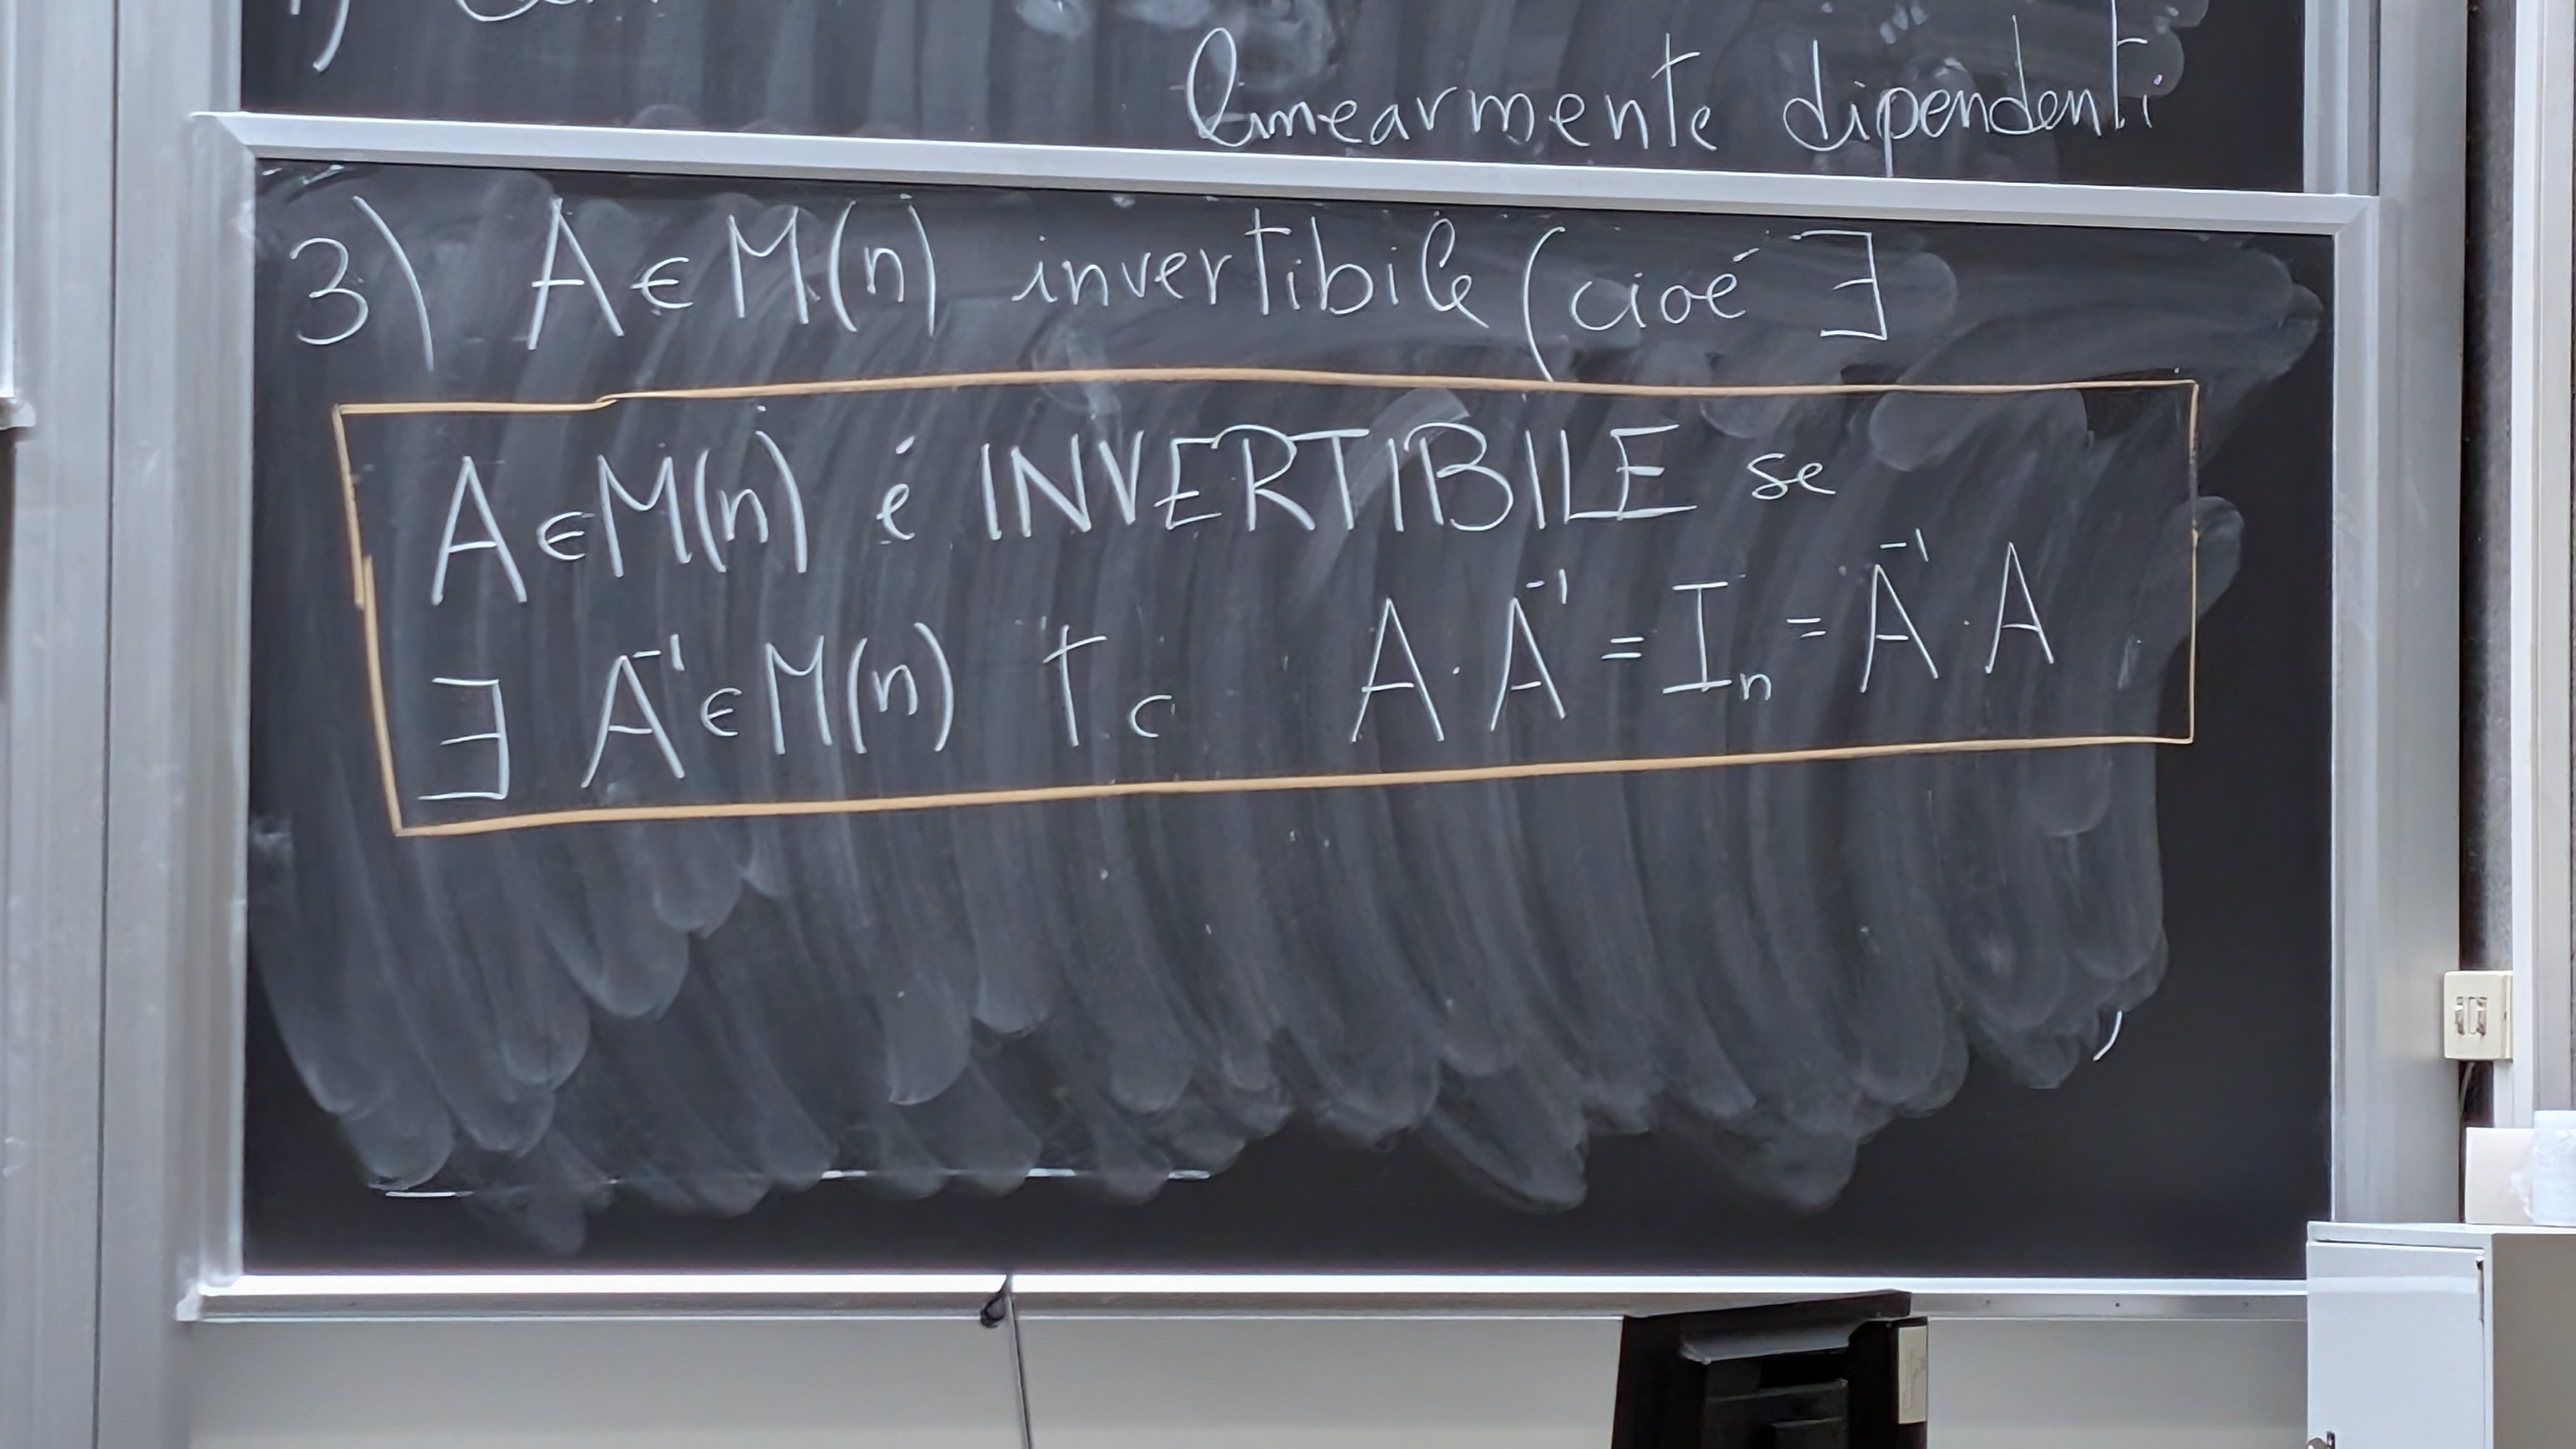 linearmente dipendenti
3) A ∈ M(n) invertibile (cioé ∃
A ∈ M(n) é INVERTIBILE se
∃ A⁻¹ ∈ M(n) tc A · A⁻¹ = Iₙ = A⁻¹ · A